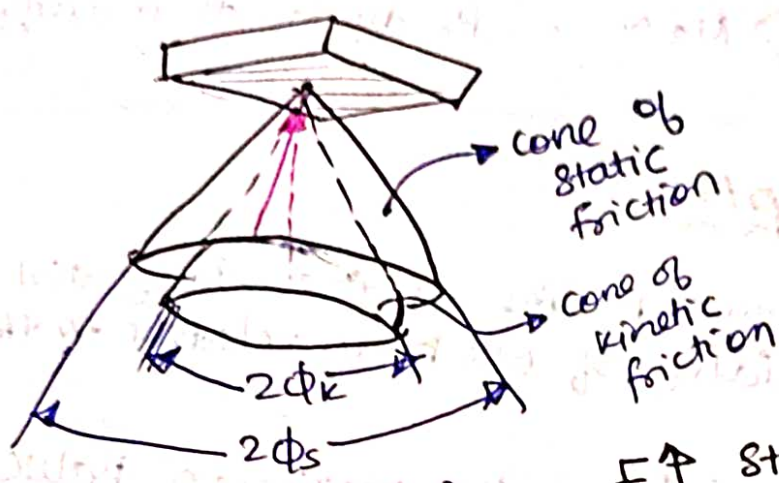 cone of
static
friction
cone of
kinetic
friction
2ϕK
2ϕs
F↑ st